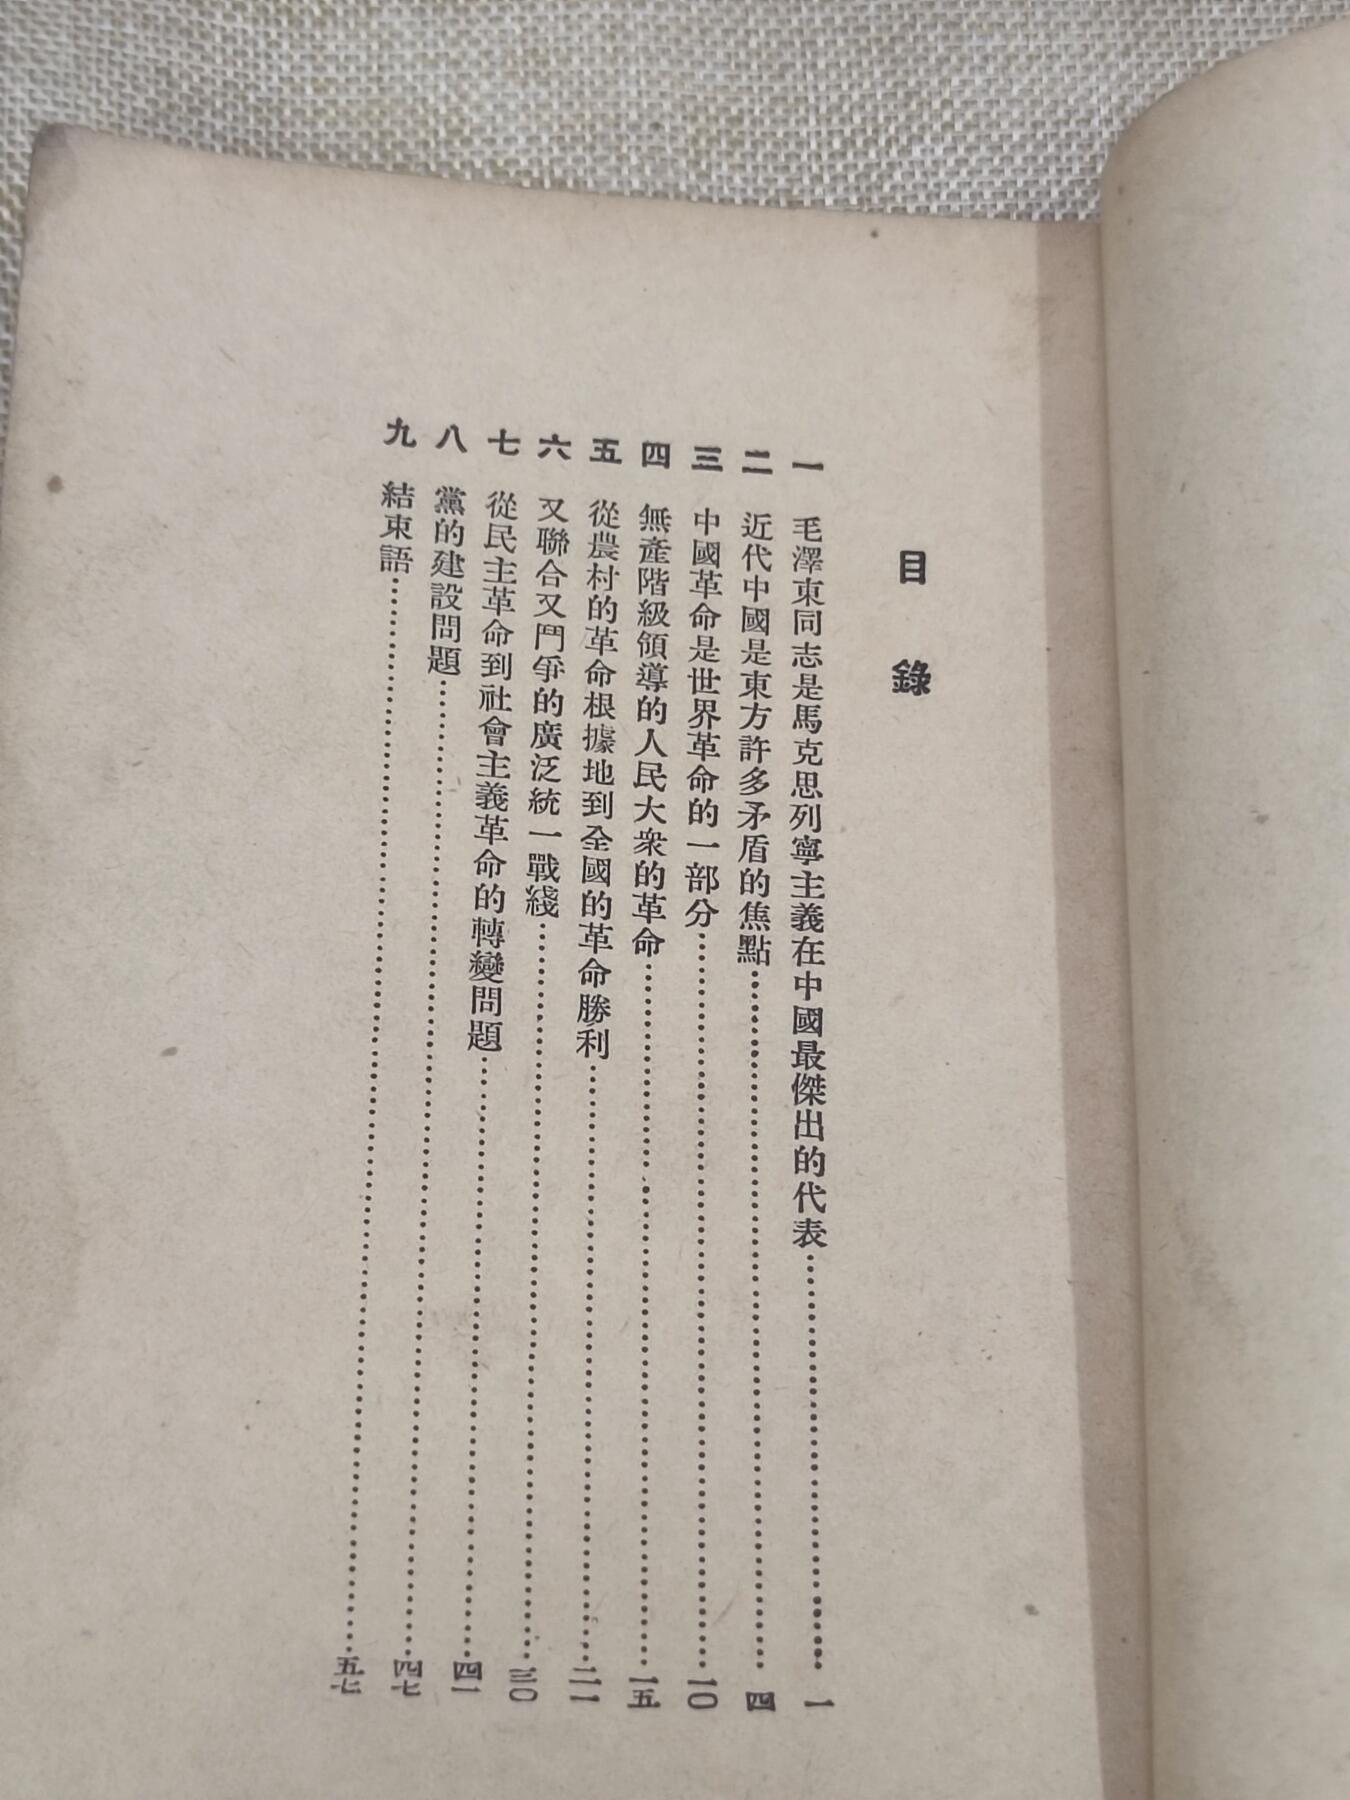 目錄
一 毛澤東同志是馬克思列寧主義在中國最傑出的代表……一
二 近代中國是東方許多矛盾的焦點……四
三 中國革命是世界革命的一部分……一〇
四 無產階級領導的人民大衆的革命……一五
五 從農村的革命根據地到全國的革命勝利……二一
六 又聯合又鬥爭的廣泛統一戰綫……三〇
七 從民主革命到社會主義革命的轉變問題……四一
八 黨的建設問題……四七
九 結束語……五七